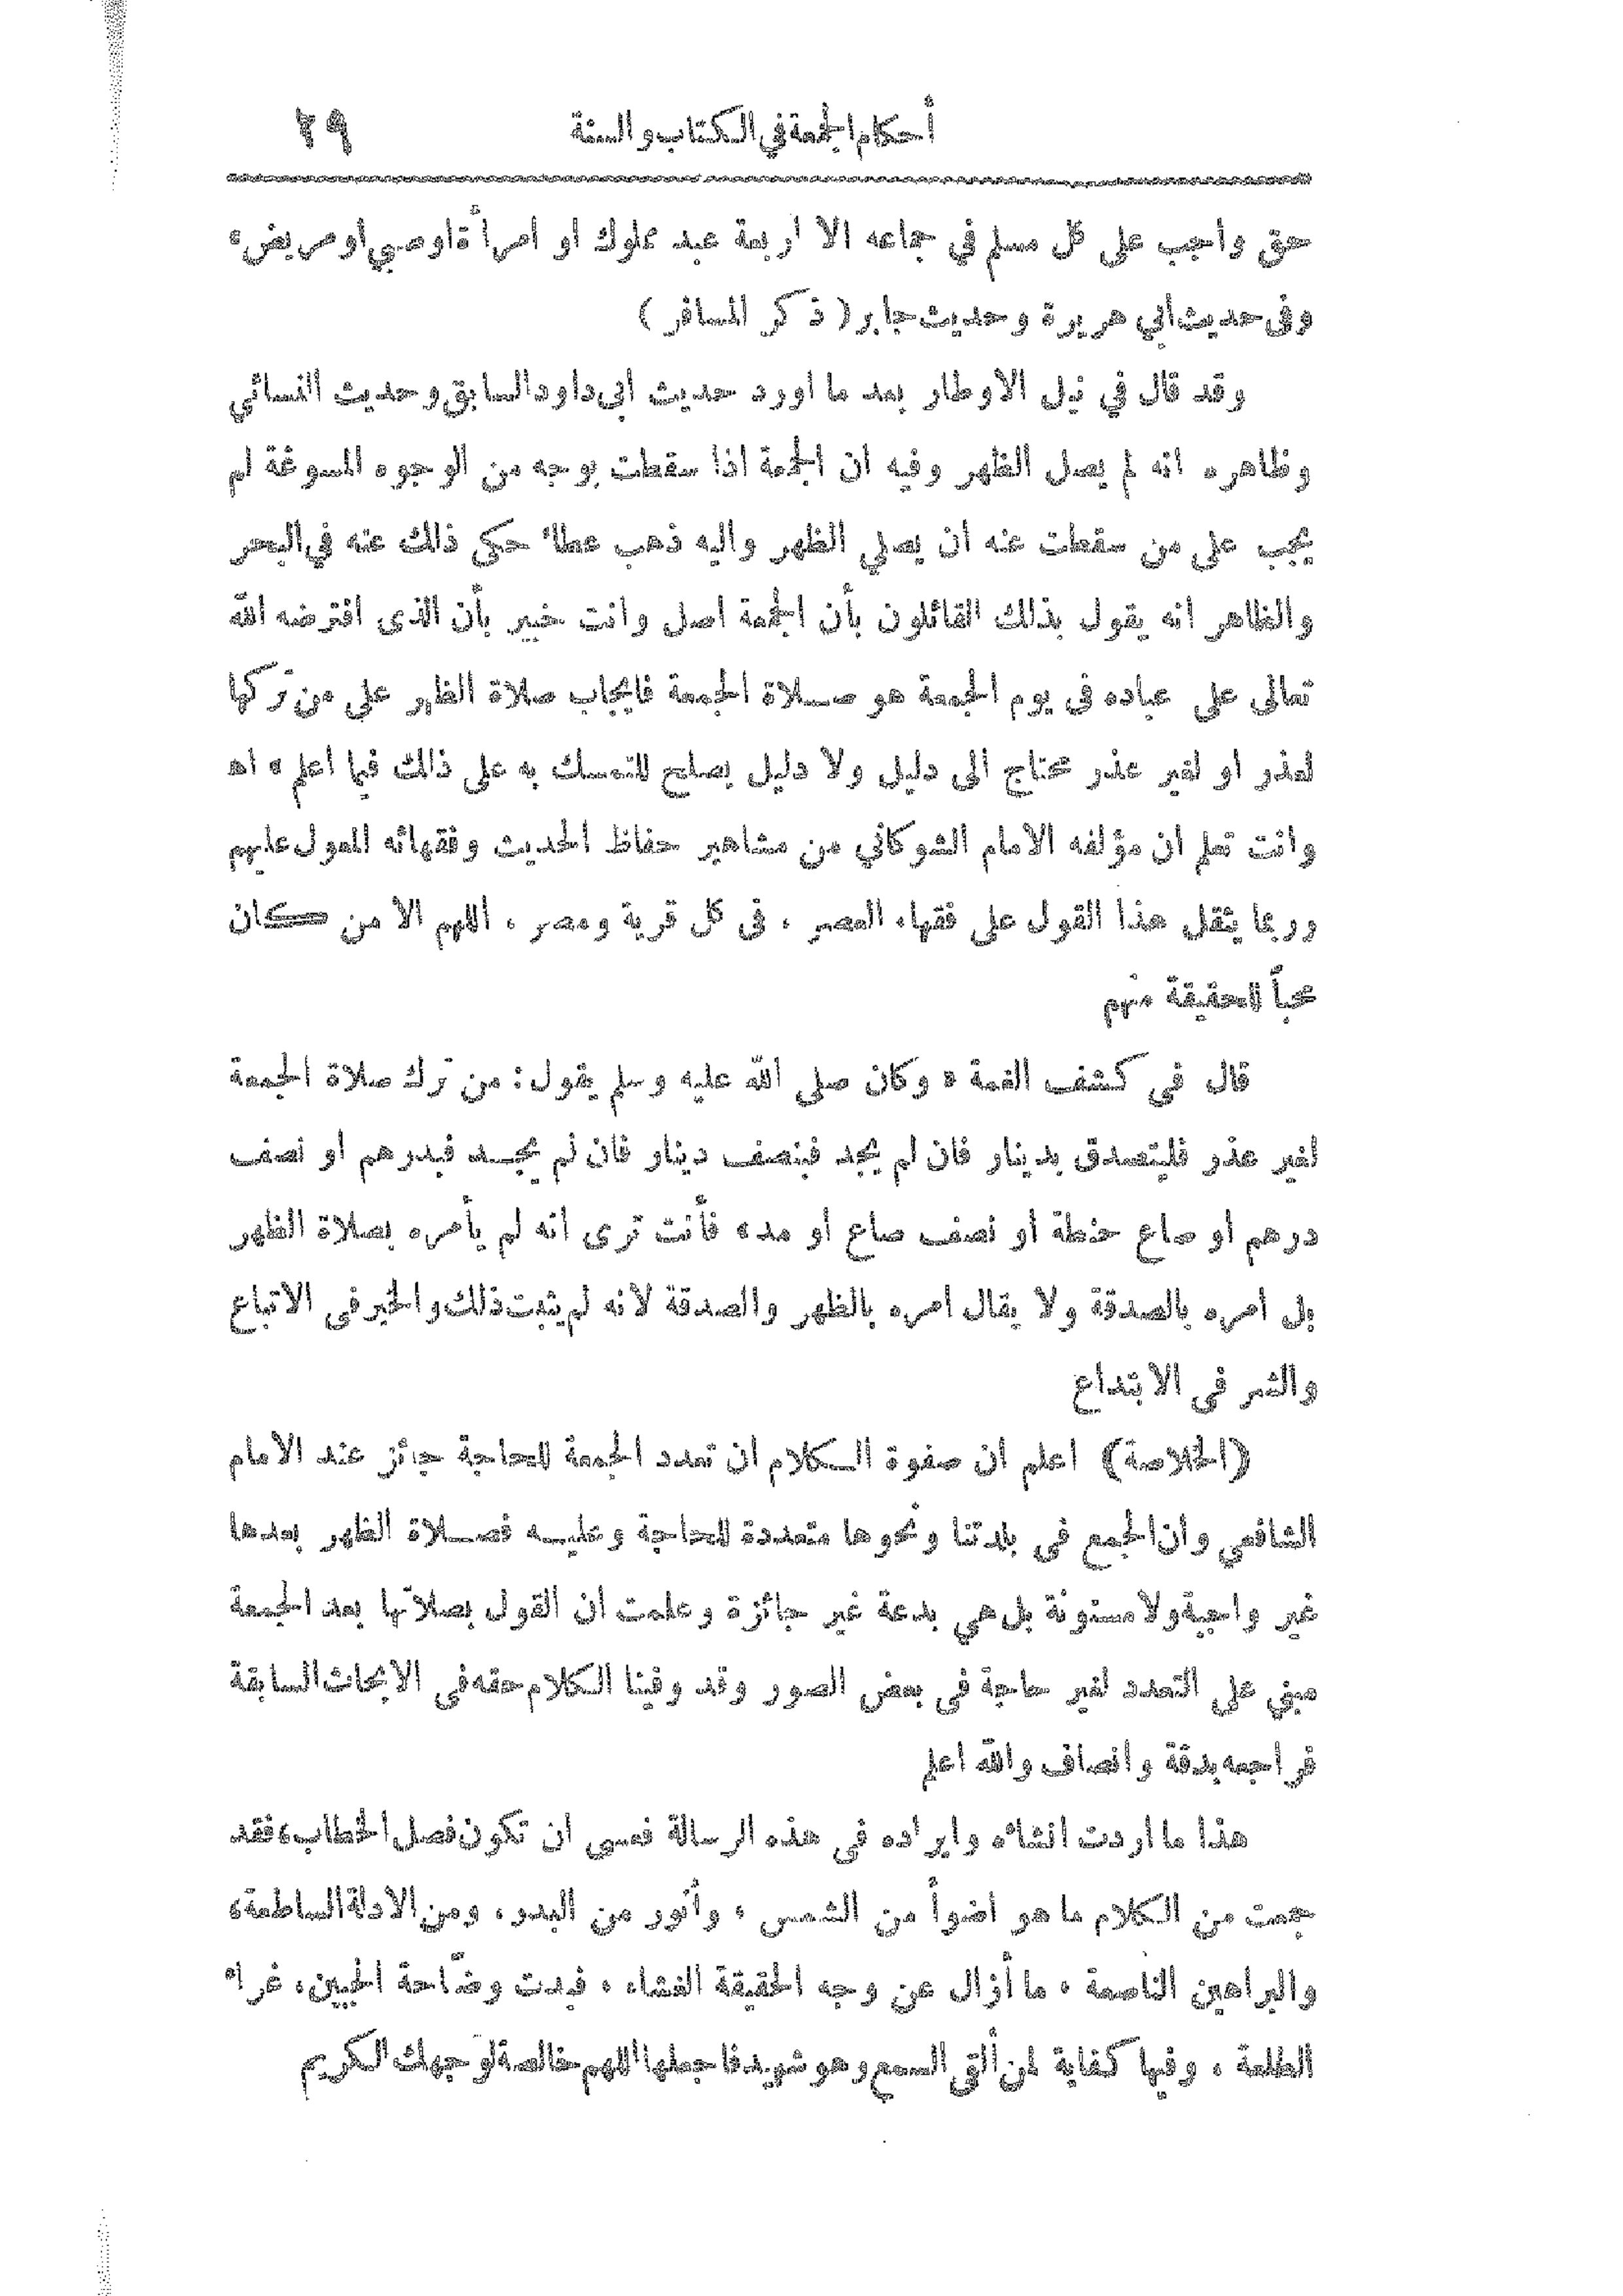 أحكام الجمعة في الكتاب والسنة ٢٩
حق واجب على كل مسلم في جماعه الا اربعة عبد مملوك او امرأة او صبي او مريض»
وفى حديث أبي هريرة وحديث جابر ( ذكر المسافر )
وقد قال في نيل الاوطار بعد ما اورد حديث ابى داود السابق وحديث النسائي
وظاهره انه لم يصل الظهر وفيه ان الجمعة اذا سقطت بوجه من الوجوه المسوغة لم
يجب على من سقطت عنه ان يصلي الظهر واليه ذهب عطاء حكى ذلك عنه في البحر
والظاهر انه يقول بذلك القائلون بأن الجمعة اصل وانت خبير بأن الذى افترضه الله
تعالى على عباده فى يوم الجمعة هو صلاة الجمعة فايجاب صلاة الظهر على من تركها
لعذر او لغير عذر محتاج الى دليل ولا دليل يصلح للتمسك به على ذلك فيما اعلم » اه
وانت تعلم ان مؤلفه الامام الشوكاني من مشاهير حفاظ الحديث وفقهائه المعول عليهم
وربما يثقل هذا القول على فقهاء العصر ، فى كل قرية ومصر ، اللهم الا من كان
محباً للحقيقة منهم
قال فى كشف الغمة « وكان صلى الله عليه وسلم يقول : من ترك صلاة الجمعة
لغير عذر فليتصدق بدينار فان لم يجد فبنصف دينار فان لم يجد فبدرهم او نصف
درهم أو صاع حنطة أو نصف صاع أو مد» فأنت ترى أنه لم يأمره بصلاة الظهر
بل أمره بالصدقة ولا يقال امره بالظهر والصدقة لانه لم يثبت ذلك والخير فى الاتباع
والشر فى الابتداع
(الخلاصة) اعلم ان صفوة الكلام ان تعدد الجمعة للحاجة جائز عند الامام
الشافعي وان الجمع فى بلدتنا ونحوها متعددة للحاجة وعليه فصلاة الظهر بعدها
غير واجبة ولا مسنونة بل هي بدعة غير جائزة وعلمت ان القول بصلاتها بعد الجمعة
مبني على التعدد لغير حاجة فى بعض الصور وقد وفينا الكلام حقه فى الابحاث السابقة
فراجعه بدقة وانصاف والله اعلم
هذا ما اردت انشاءه وايراده فى هذه الرسالة فعسى ان تكون فصل الخطاب، فقد
جمعت من الكلام ما هو اضوأ من الشمس ، وأنور من البدر ، ومن الادلة الساطعة،
والبراهين الناصعة ، ما أزال عن وجه الحقيقة الغشاء ، فبدت وضّاحة الجبين، غراء
الطلعة ، وفيها كفاية لمن ألقى السمع وهو شهيد فاجعلها اللهم خالصة لوجهك الكريم